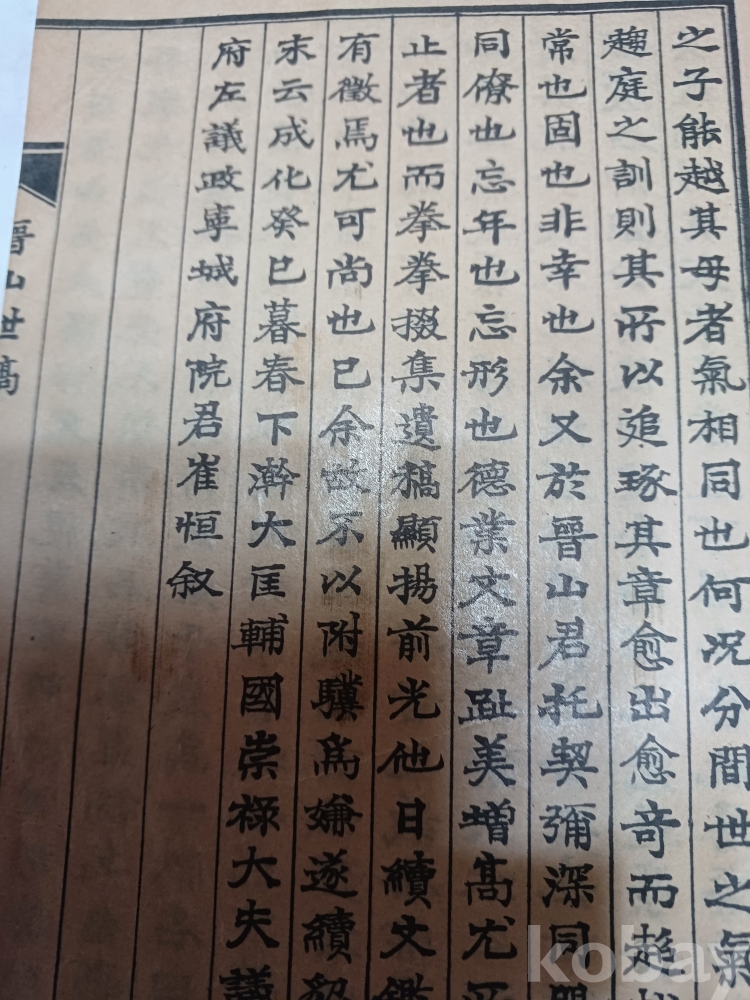 之子能越其母者氣相同也何况分間世之氣
趨庭之訓則其所以追琢其章愈出愈奇而趍
常也固也非幸也余又於晉山君托契彌深同
同僚也忘年也忘形也德業文章趾美增髙尤所
止者也而拳拳掇集遺稿顯揚前光他日續文鑑
有徵焉尤可尚也已余故不以附驥爲嫌遂續貂
末云成化癸巳暮春下澣大匡輔國崇祿大夫議
府左議政寧城府院君崔恒叙
晉山世髙
kobay